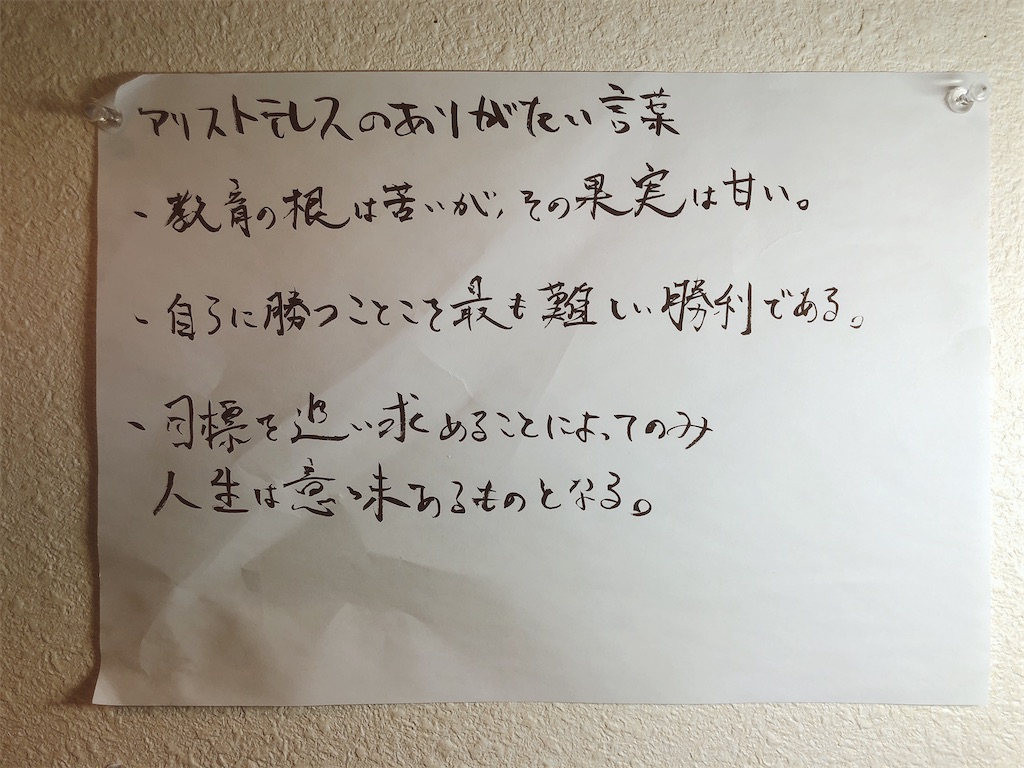 アリストテレスのありがたい言葉
、教育の根は苦いが、その果実は甘い。
、自らに勝つことこそ最も難しい勝利である。
、目標を追い求めることによってのみ
人生は意味あるものとなる。